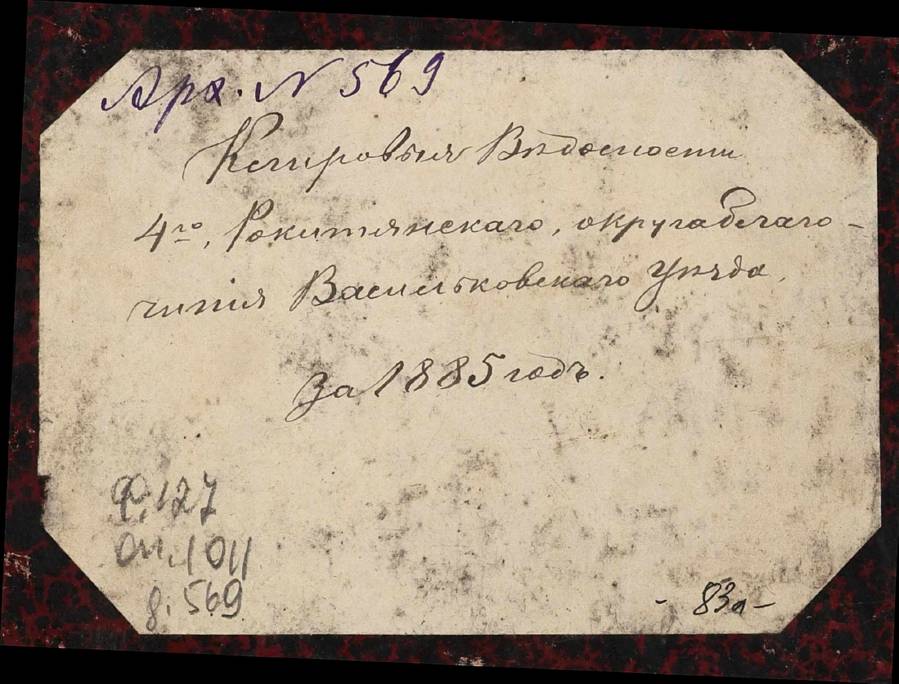 Арх. N 569
Клировыя Вѣдомости
4го, Рокитянскаго, округа благо-
чинія Васильковскаго уѣзда,
За 1885 годъ.
Ф. 127
Оп. 1011
д. 569
- 83а -